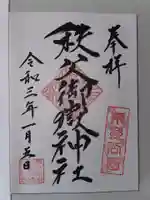 奉拝
秩父御嶽神社
令和三年一月五日